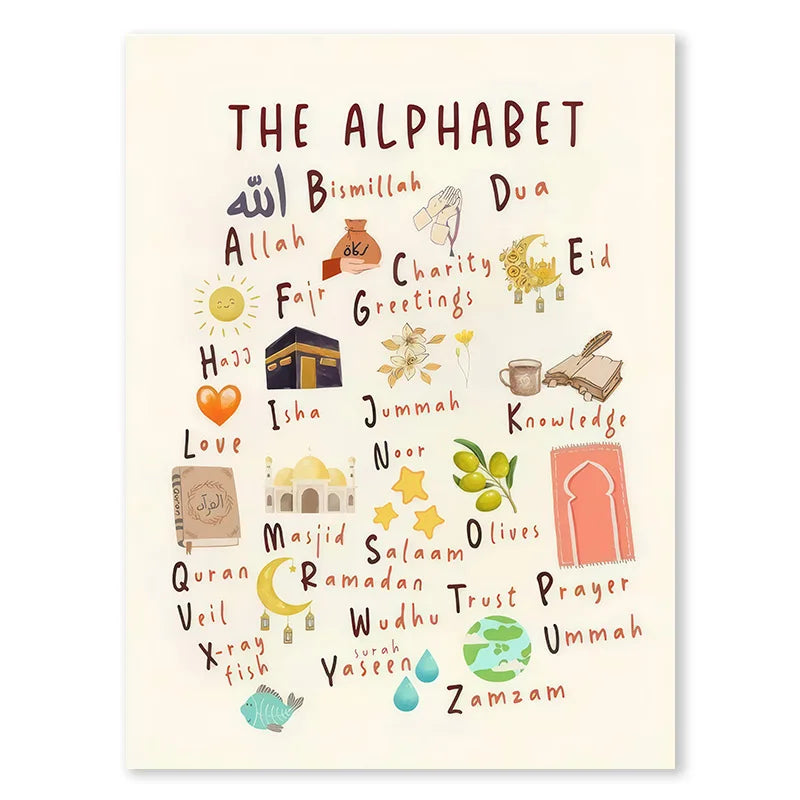 THE ALPHABET
الله
Bismillah
Dua
Allah
زكاة
Charity
Eid
Fajr
Greetings
Hajj
Isha
Jummah
Knowledge
Love
Noor
القرآن
Masjid
Salaam
Olives
Quran
Ramadan
Trust
Prayer
Veil
Wudhu
Ummah
X-ray
fish
surah
Yaseen
Zamzam